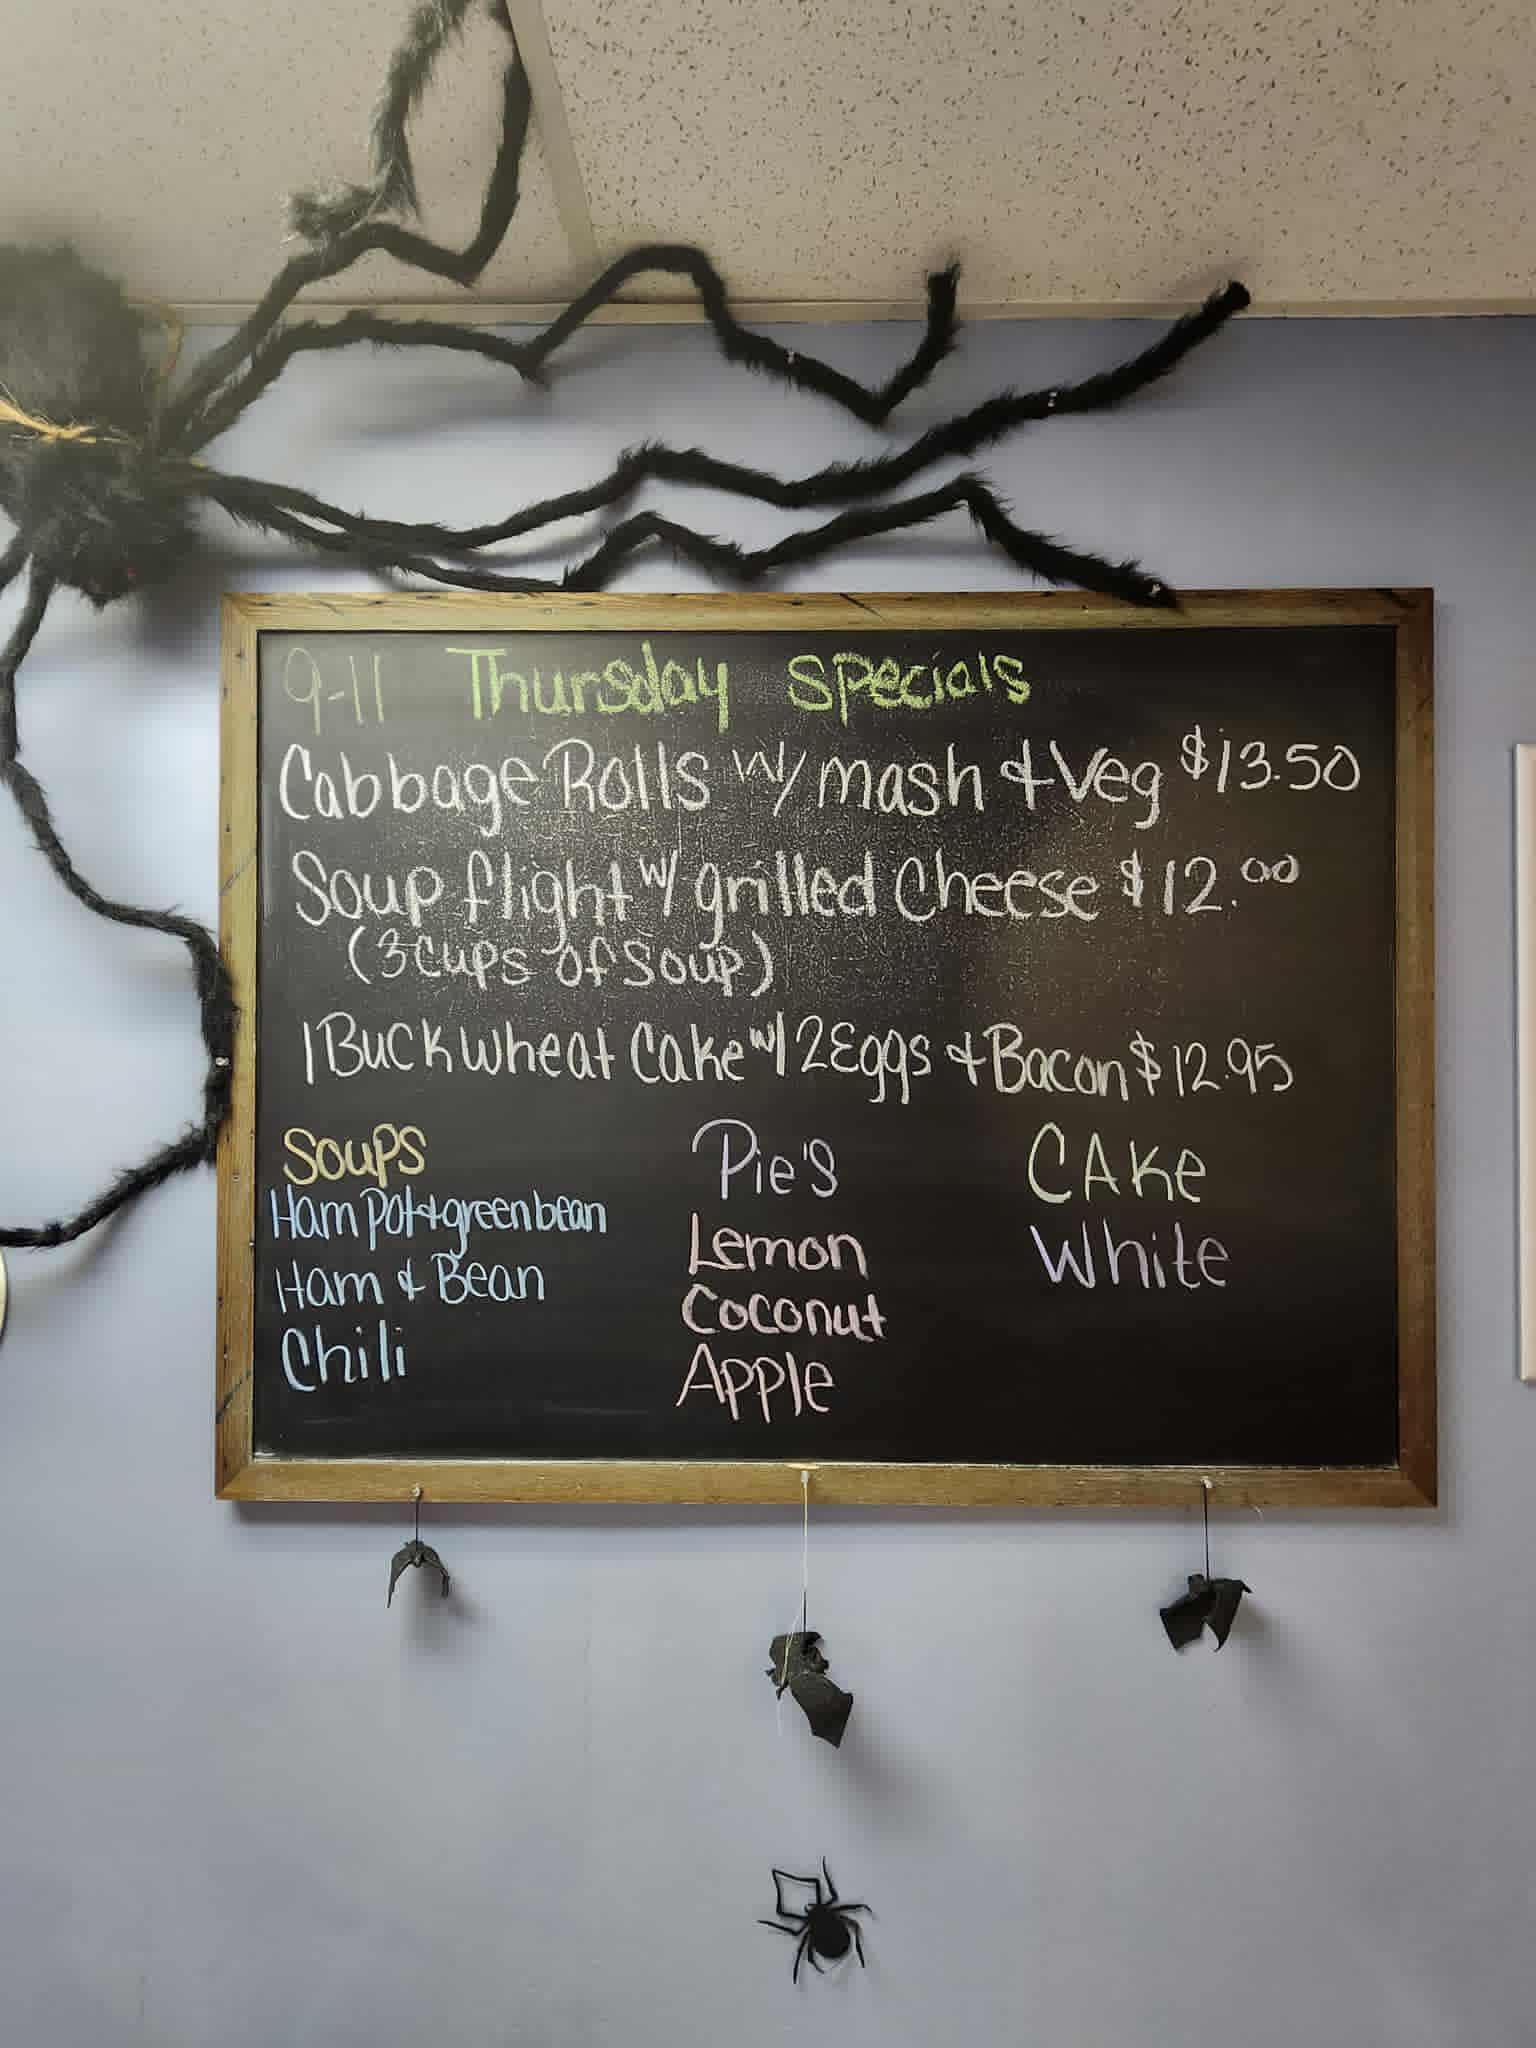 9-11 Thursday Specials
Cabbage Rolls w/ mash & Veg $13.50
Soup flight w/ grilled Cheese $12.00
(3 Cups of Soup)
1 Buckwheat Cake w/ 2 Eggs & Bacon $12.95
Soups
Ham Pot & green bean
Ham & Bean
Chili
Pie's
Lemon
Coconut
Apple
CAke
White